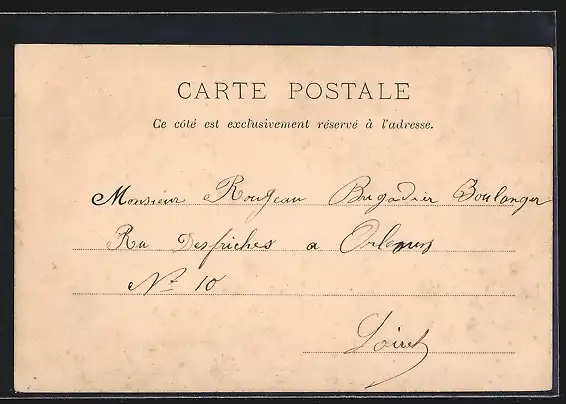 CARTE POSTALE
Ce côté est exclusivement réservé à l'adresse.
Monsieur Rougeau Brigadier Boulanger
Ru Desfriches a Orleans
Nº 10
Loiret